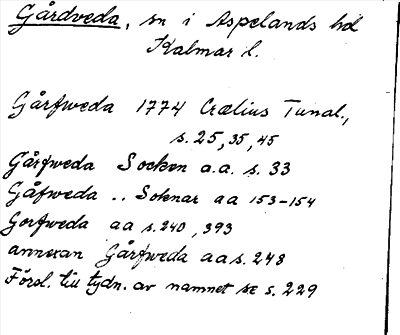 Gårdveda, sn i Aspelands hd
Kalmar l.
Gårfweda 1774 Crælius Tunal.,
s. 25, 35, 45
Gårfweda Socken a.a. s. 33
Gåfweda .. Soknar aa 153-154
Gorfweda aa s. 240, 393
annexan Gårfweda aa s. 248
Försl. till tydn. av namnet se s. 229